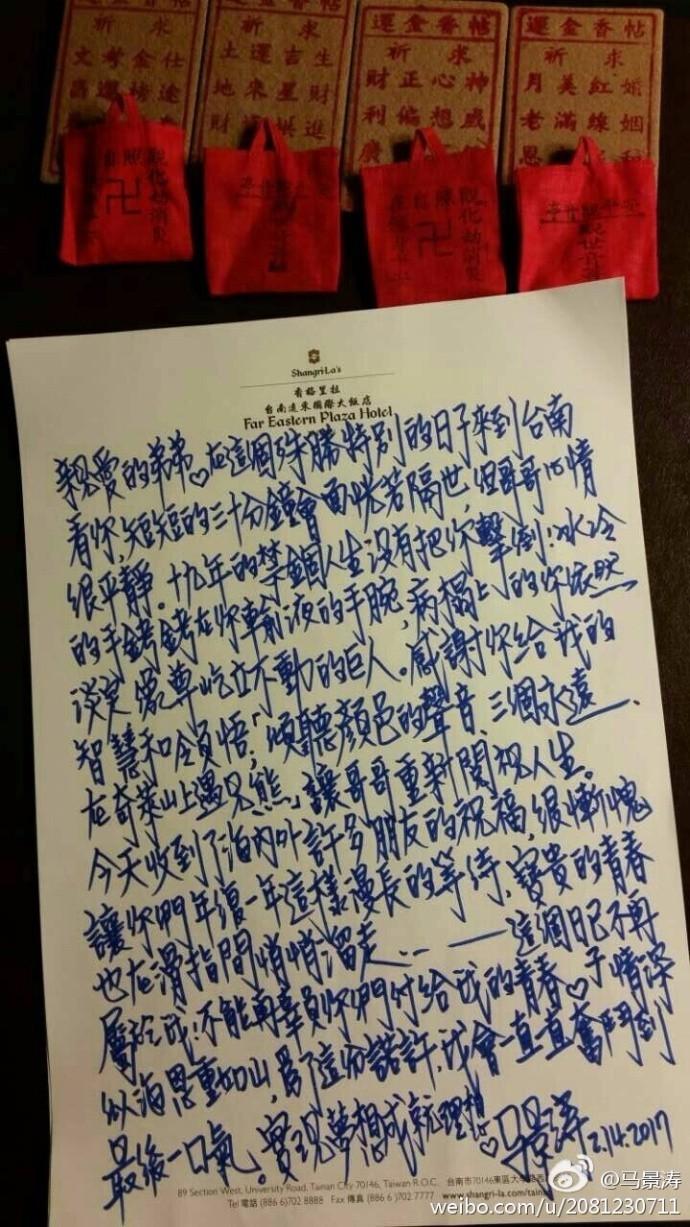 運金香帖
祈求
文考金仕
昌運榜途
運金香帖
祈求
土運吉生
地來星財
財進
運金香帖
祈求
財正心神
利偏想威
廣
運金香帖
祈求
月美紅婚
老滿線姻
恩
觀化劫消災
卍
觀化劫消災
卍
觀世音
Shangri-La's
香格里拉
台南遠東國際大飯店
Far Eastern Plaza Hotel
親愛的弟弟♡在這個殊勝特別的日子來到台南
看你,短短的三十分鐘會面恍若隔世,但哥哥心情
很平靜。十九年的禁錮人生沒有把你擊倒!冰冷
的手銬銬在你輸液的手腕,病榻上的你依然
淡定 屹立不動的巨人。感謝你給我的
智慧和領悟,「傾聽顏色的聲音、三個永遠、
在奇萊山上遇見熊」讓哥哥重新閱視人生。
今天收到了海內外許多朋友的祝福,很慚愧
讓你們年復一年這樣漫長的等待,寶貴的青春
也在滑指間悄悄溜走……——這個日已不再
屬於我!不能再辜負你們付給我的青春♡于情深
似海恩重如山,為了這份諾許,我會一直直奮鬥到
最後一口氣。實現夢想成就理想♡馬景濤 2.14.2017
89 Section West, University Road, Tainan City 70146, Taiwan R.O.C. 台南市70146東區大學路西
Tel 電話 (886 6)702 8888 Fax 傳真 (886 6)702 7777 www.shangri-la.com/tain
@马景涛
weibo.com/u/2081230711